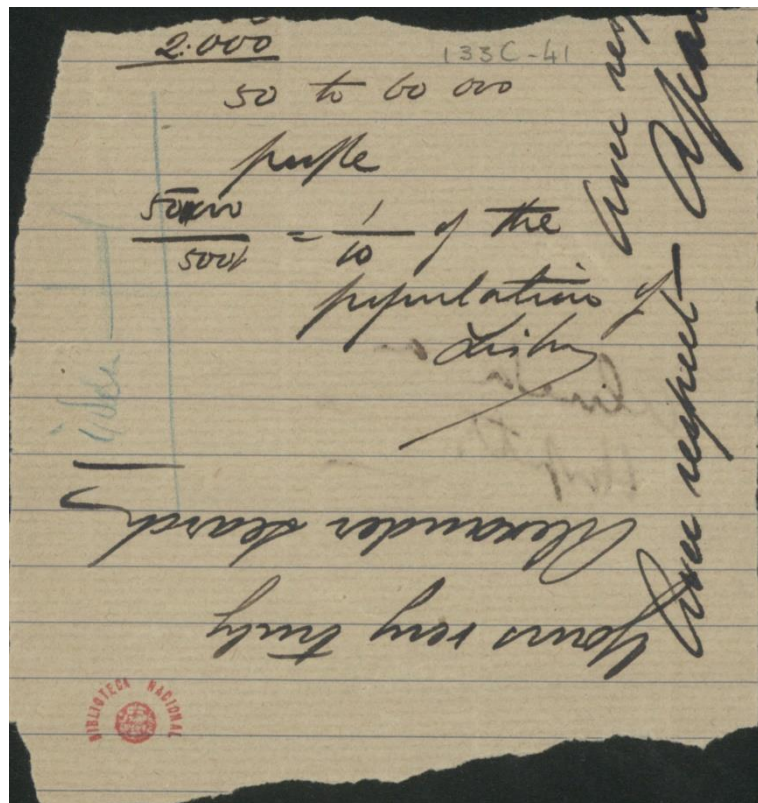 2.000
133C-41
50 to 60 000
people
50000
5000
= 1
10
of the
population of
Lisbon
Yours very truly
Alexander Search
Avec respect
Avec
BIBLIOTECA NACIONAL